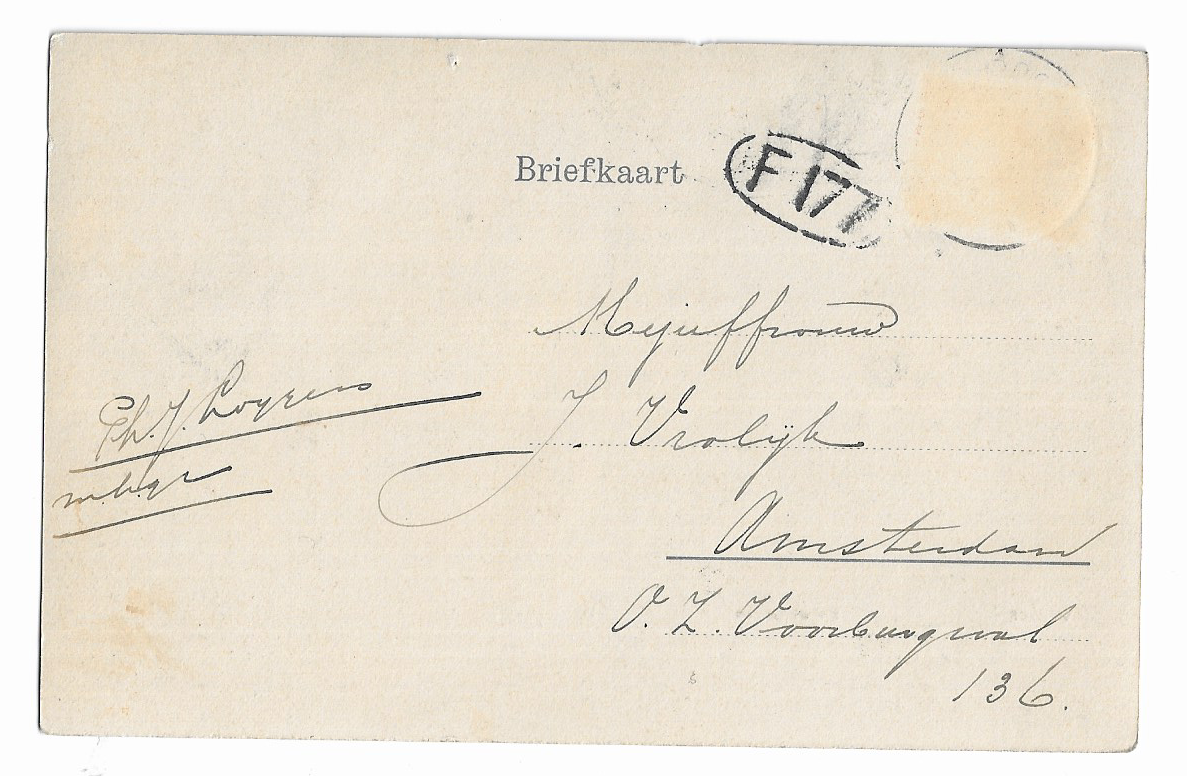 Briefkaart
F 177
Mejuffrouw
J. Vrolijk
Amsterdam
O. Z. Voorburgwal
136.
Th. J.